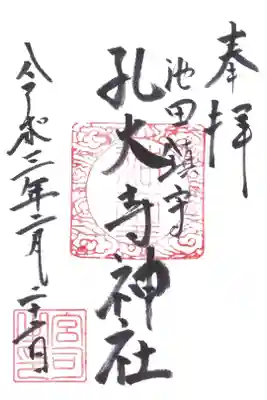 奉拝
池田鎮守
孔大寺神社
令和三年二月二十二日